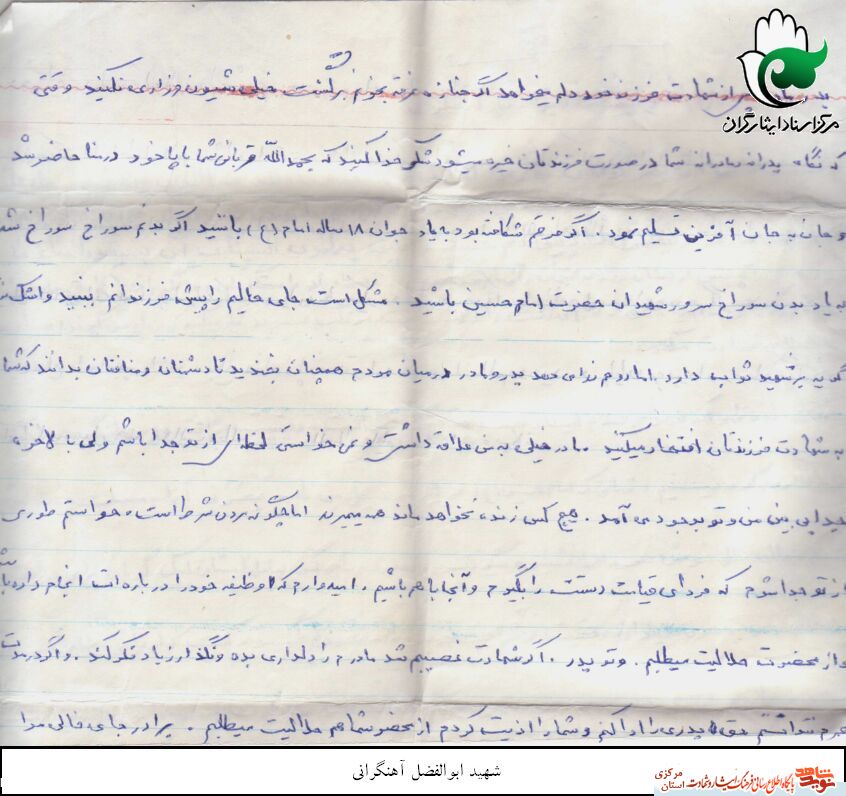 مرکز اسناد ایثارگران
پس از شهادت فرزند خود دلم میخواهد اگر جنازه غرقه بخونم برگشت خیلی شیون و زاری نکنید وقتی
که نگاه پدرانه مادرانه شما در صورت فرزندتان خیره میشود شکر خدا کنید که بحمدالله قربانی شما با پا خود در منا حاضر شد
و جان به جان آفرین تسلیم نمود . اگر فرقم شکافته بود به یاد جوان ۱۸ ساله امام (ع) باشید اگر بدنم سوراخ سوراخ شد
به یاد بدن سوراخ سرور شهیدان حضرت امام حسین باشید . مشکل است جای خالیم را پیش فرزندانم ببینید و اشک
گریه بر شهید ثواب دارد اما پدر و مادر در میان مردم همچنان بخندید تا دشمنان و منافقان بدانند که شما
به شهادت فرزندتان افتخار میکنید . مادر خیلی به من علاقه داشتی و نمی خواستی لحظه‌ای از تو جدا باشم ولی با لاخره
جدایی بین من و تو بوجود می آمد . هیچ کس زنده نخواهد ماند همه میمیرند اما چگونه مردن شرط است . خواستم طوری
از تو جدا شوم که فردای قیامت دستت را بگیرم و آنجا با هم باشیم . امیدوارم که وظیفه خود را درباره ات انجام داده باشم
و از محضرت حلالیت میطلبم . و تو پدر . اگر شهادت نصیبم شد مادرم را دلداری بده و نگذار زیاد نگو کند . و اگر در مدت
عمرم نتوانستم حق پدری را ادا کنم و شما را اذیت کردم از محضر شما هم حلالیت میطلبم . برادر جای خالی مرا
شهید ابوالفضل آهنگرانی
نوید شاهد
پایگاه اطلاع رسانی فرهنگ ایثار و شهادت
استان مرکزی